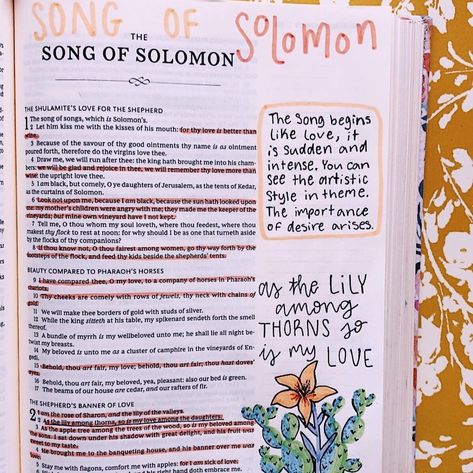 SONG OF SOLOMON
THE
SONG OF SOLOMON
THE SHULAMITE'S LOVE FOR THE SHEPHERD
1 The song of songs, which is Solomon's.
2 Let him kiss me with the kisses of his mouth: for thy love is better than
wine.
3 Because of the savour of thy good ointments thy name is as ointment
poured forth, therefore do the virgins love thee.
4 Draw me, we will run after thee: the king hath brought me into his cham-
bers: we will be glad and rejoice in thee, we will remember thy love more than
wine: the upright love thee.
5 I am black, but comely, O ye daughters of Jerusalem, as the tents of Kedar,
as the curtains of Solomon.
6 Look not upon me, because I am black, because the sun hath looked upon
me: my mother's children were angry with me; they made me the keeper of the
vineyards; but mine own vineyard have I not kept.
7 Tell me, O thou whom my soul loveth, where thou feedest, where thou
makest thy flock to rest at noon: for why should I be as one that turneth aside
by the flocks of thy companions?
8 If thou know not, O thou fairest among women, go thy way forth by the
footsteps of the flock, and feed thy kids beside the shepherds' tents.
BEAUTY COMPARED TO PHARAOH'S HORSES
9 I have compared thee, O my love, to a company of horses in Pharaoh's
chariots.
10 Thy cheeks are comely with rows of jewels, thy neck with chains of
gold.
11 We will make thee borders of gold with studs of silver.
12 While the king sitteth at his table, my spikenard sendeth forth the smell
thereof.
13 A bundle of myrrh is my wellbeloved unto me; he shall lie all night be-
twixt my breasts.
14 My beloved is unto me as a cluster of camphire in the vineyards of En-
gedi.
15 Behold, thou art fair, my love; behold, thou art fair; thou hast doves'
eyes.
16 Behold, thou art fair, my beloved, yea, pleasant: also our bed is green.
17 The beams of our house are cedar, and our rafters of fir.
THE SHEPHERD'S BANNER OF LOVE
2 I am the rose of Sharon, and the lily of the valleys.
2 As the lily among thorns, so is my love among the daughters.
3 As the apple tree among the trees of the wood, so is my beloved among
the sons. I sat down under his shadow with great delight, and his fruit was
sweet to my taste.
4 He brought me to the banqueting house, and his banner over me was
love.
5 Stay me with flagons, comfort me with apples: for I am sick of love.
6 His left hand is under my head, and his right hand doth embrace me.
The Song begins
like Love, it
is sudden and
intense. You can
see the artistic
style in theme.
The importance
of desire arises.
as the LILY
among
THORNS so
is my LOVE